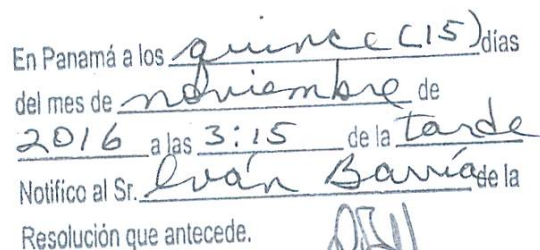 En Panamá a los quince (15) días
del mes de noviembre de
2016 a las 3:15 de la tarde
Notifico al Sr. Iván Barría de la
Resolución que antecede.